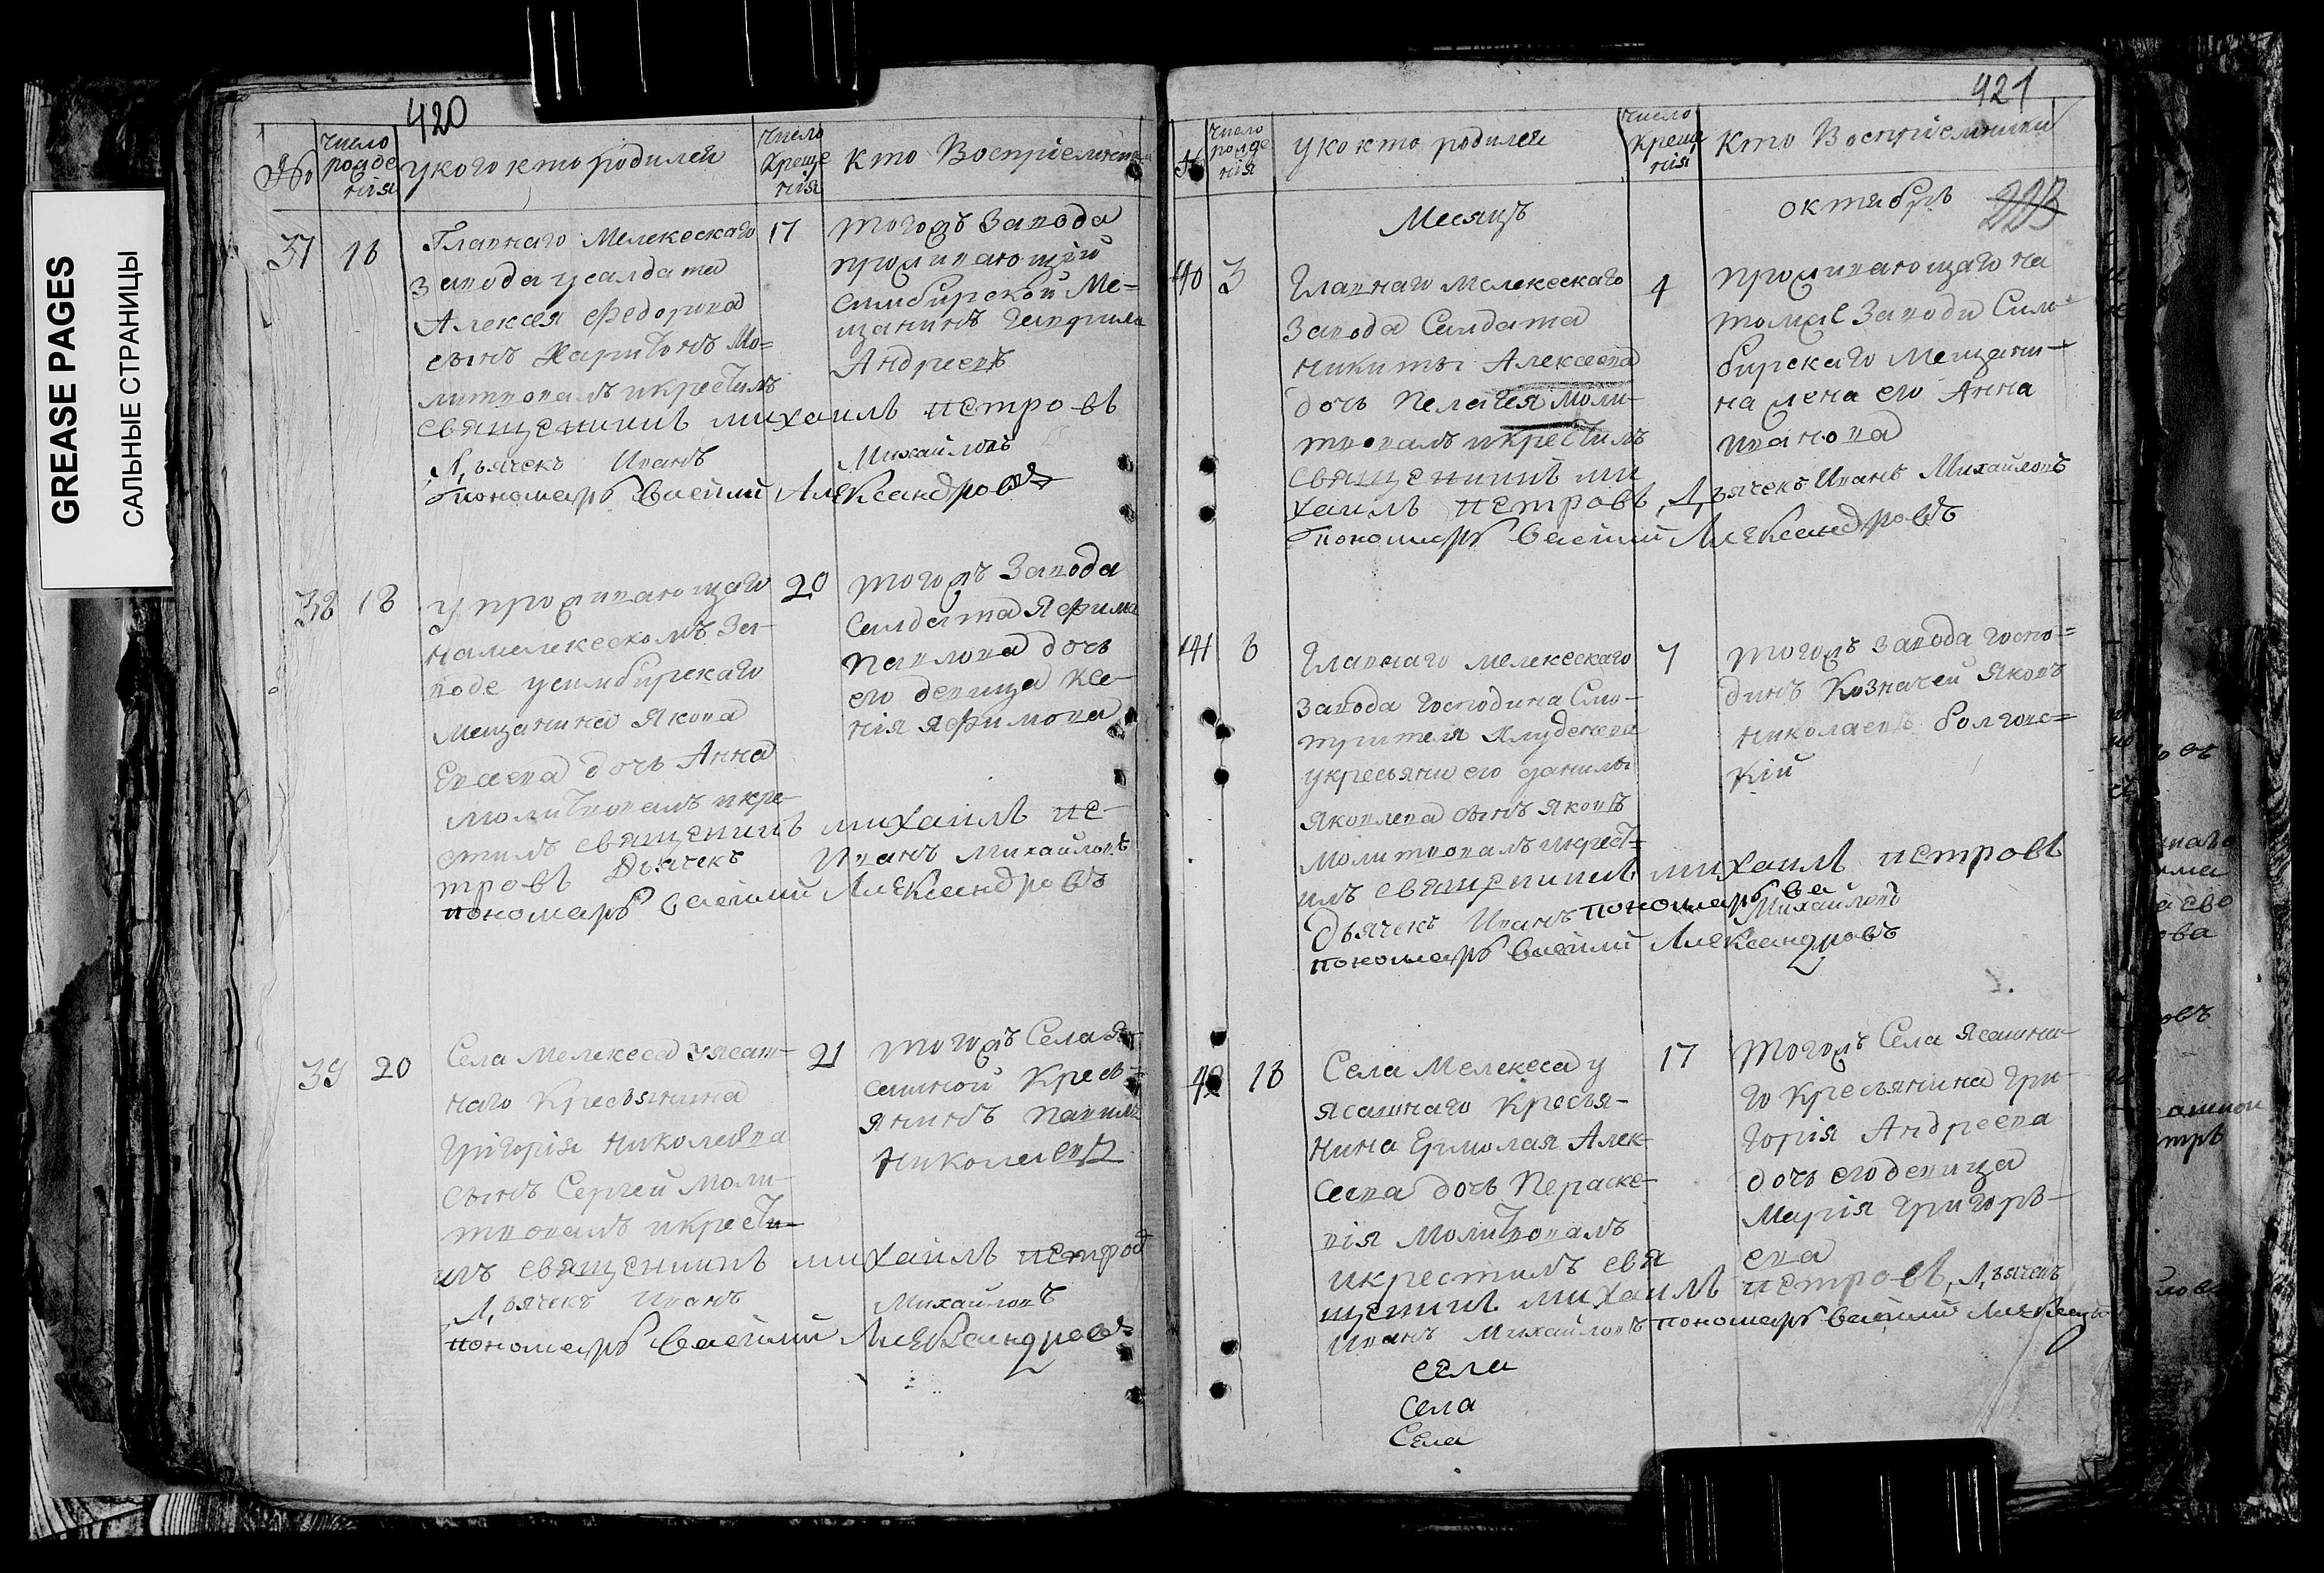 GREASE PAGES
САЛЬНЫЕ СТРАНИЦЫ
420
№
число рожде нія
у кого кто родилсй
число креще нія
кто Воспріемники
37
16
Главнаго Мелекескаго
завода усалдата
Алексея Федорова
сынъ Харитонъ Мо=
литвовалъ икрестилъ
священникъ михаилъ петровъ
Дьячекъ Иванъ Михайловъ
пономарь василий Александровъ
17
тогожъ Завода
проживающей
симбирской Ме=
щанинъ Гаврила
Андреевъ
38
18
у проживающаго
намелекескомъ За-
воде усимбирскаго
мещанина Якова
Еваева дочь Анна
молитвовалъ икре-
стилъ священникъ михаилъ пе-
тровъ Дьячекъ Иванъ Михайловъ
пономарь василий Александровъ
20
тогожъ Завода
Салдата Яфима
Павлова дочь
его девица Ксе-
нія Яфимова
39
20
Села Мелекеса уясаш-
наго Кресьянина
Григорія Николаева
сынъ Сергей Моли-
твовалъ икрести-
лъ священникъ михаилъ петров
Дьячекъ Иванъ Михайловъ
пономарь василий Александровъ
21
тогожъ Села Я-
сашной Кресь-
янинъ Павилъ
Николаевъ
421
№
число рожде нія
уко кто родилсй
число креще нія
кто Воспріемники
Месяцъ октябрь
223
40
3
Главнаго мелекескаго
Завода Салдата
Никиты Алексеева
дочь Пелагея Моли-
твовалъ икрестилъ
священникъ ми
хаилъ петровъ, Дьячекъ Иванъ Михайловъ
пономарь василий Александровъ
4
проживающаго на
томже Заводи Сим-
бирскаго Мещани-
на жена его Анна
Иванова
41
6
Главнаго мелекескаго
Завода господина Смо-
трителя Клуденева
укресьяни его данилы
Яковлева сынъ Яковъ
Молитвовалъ икрест-
илъ священникъ михаилъ петровъ
Дьячекъ Иванъ пономарь ва
Михайловъ
пономарь василий Александровъ
7
тогожъ Завода госпо=
динъ Козначей Яковъ
Николаевъ Болговс=
кій
42
16
Села Мелекеса у
ясашнаго кресья-
нина Ермолая Алек-
сеева дочь Параске-
вія Молитвовалъ
икрестилъ свя
щенникъ михаилъ петровъ, Дьячекъ
Иванъ Михайловъ пономарь василий Александр
17
тогожъ Села Ясашна-
го Кресьянина Гри-
горія Андреева
дочь его девица
Марія Григорь-
ева
села
Села
Села